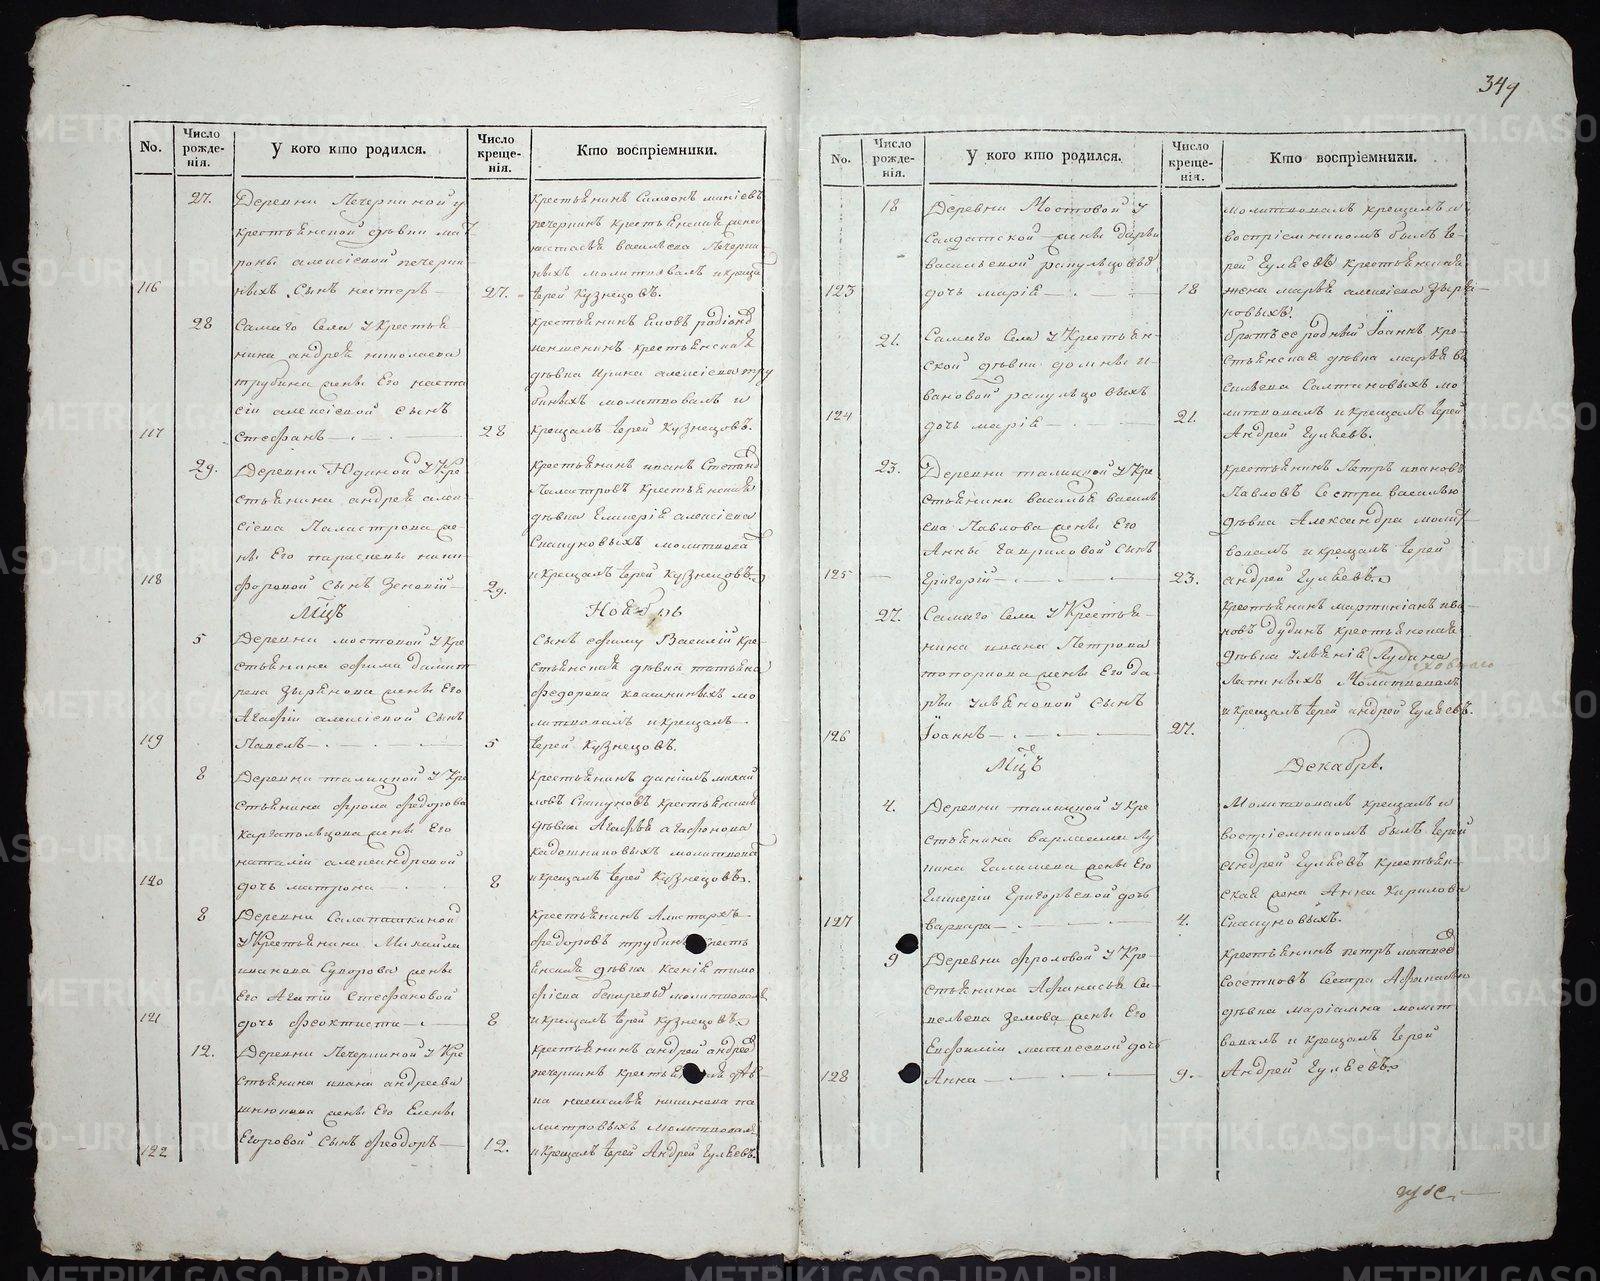 349
No.
Число рожденія.
У кого кто родился.
Число крещенія.
Кто воспріемники.
27.
Деревни Печеркиной у
крестьянской дѣвки мат
роны алексіевой печерки
116
ныхъ сынъ несторъ
27.
крестьянинъ Симеонъ
печеркинъ крестьянская жена
васильева Печерки
ныхъ молитвовалъ и крещалъ
Іерей Кузнецовъ.
28
Самаго Села У Крестья
нина андрея николаева
трубина жены Его наста
сіи алексіевой сынъ
117
Стефанъ
28
крестьянинъ Іаковъ родіоновъ
крестьянская
дѣвка Ирина алексіева тру
биныхъ молитвовалъ и
крещалъ Іерей Кузнецовъ.
29.
Деревни Юдиной У Кре
стьянина андрея алек
сіева Паластрова же
ны Его параскевы ники
118
форовой сынъ Зеновій
29.
крестьянинъ иванъ Степановъ
Паластровъ крестьянская
дѣвка Гликерія алексіева
молитвовалъ
и крещалъ Іерей Кузнецовъ
Мцъ
Ноябрь
5
Деревни мостовой У Кре
стьянина Ефима дмит
рева Зырянова жены Его
Агафіи алексіевой сынъ
119
Павелъ
5
Сынъ Ефиму Василій кре
стьянская дѣвка татьяна
федорова квашниныхъ мо
литвовалъ и крещалъ
Іерей Кузнецовъ.
8
Деревни талицкой У Кре
стьянина Фрола Федорова
Каргапольцова жены Его
наталіи александровой
120
дочь матрона
8
крестьянинъ даніилъ михай
ловъ крестьянская
дѣвка Агафья агафонова
кадошниковыхъ молитвовалъ
и крещалъ Іерей Кузнецовъ.
8
Деревни Салапашкиной
У Крестьянина Михайла
иванова Суворова жены
Его Агапіи Стефановой
121
дочь феоктиста
8
крестьянинъ Алистархъ
Федоровъ трубинъ кресть
янская дѣвка Ксенія тимо
фіева молитвовалъ
и крещалъ Іерей Кузнецовъ
12.
Деревни Печеркиной У Кре
стьянина ивана андреева
жены Его Елены
122
Егоровой сынъ Феодоръ
12.
крестьянинъ андрей андреев
печеркинъ крестьянская дѣв
ка па
ластровыхъ молитвовалъ
и крещалъ Іерей Андрей Гуляевъ.
No.
Число рожденія.
У кого кто родился.
Число крещенія.
Кто воспріемники.
18
Деревни Мостовой У
Салдатской жены дарьи
васильевой рапульцовыя
123
дочь марія
18
молитвовалъ крещалъ и
востріемникомъ былъ Іе
рей Гуляевъ крестьянская
жена марья алексіева Зыря
новыхъ.
21.
Самаго Села У Крестьян
ской дѣвки домны и
вановой рапульцовыхъ
124
дочь марія
21.
братъ ее родный Іоаннъ кре
стьянская дѣвка марья ва
сильева Салтановыхъ мо
литвовалъ и крещалъ Іерей
Андрей Гуляевъ.
23.
Деревни талицкой У Кре
стьянина василья василь
ева Павлова жены Его
Анны Гавриловой сынъ
125
Григорій
23.
крестьянинъ Петръ ивановъ
Павловъ Сестра василью
дѣвка Александра молит
вовалъ и крещалъ Іерей
андрей Гуляевъ
27.
Самаго Села У Крестья
нина ивана Петрова
топоркова жены Его да
рьи ульяновой сынъ
126
Іоаннъ
27.
крестьянинъ мартиніанъ ива
новъ дудинъ крестьянская
дѣвка Ульянія
Молитвовалъ
и крещалъ Іерей андрей Гуляевъ.
Мцъ
Декабрь.
4.
Деревни талицкой У Кре
стьянина варлаама Лу
кина Галишева жены Его
Гликеріи Григорьевой дочь
127
варвара
4.
Молитвовалъ крещалъ и
востріемникомъ былъ Іерей
андрей Гуляевъ крестьян
ская жена Анна Кирилова
9
Деревни Фроловой У Кре
стьянина Афанасья Са
вельева Земова жены Его
Евфиміи матвеевой дочь
128
Анна
9.
крестьянинъ петръ матвеев
Сосетковъ Сестра Афанасью
дѣвка маріамна молит
вовалъ и крещалъ Іерей
Андрей Гуляевъ
METRIKI.GASO-URAL.RU